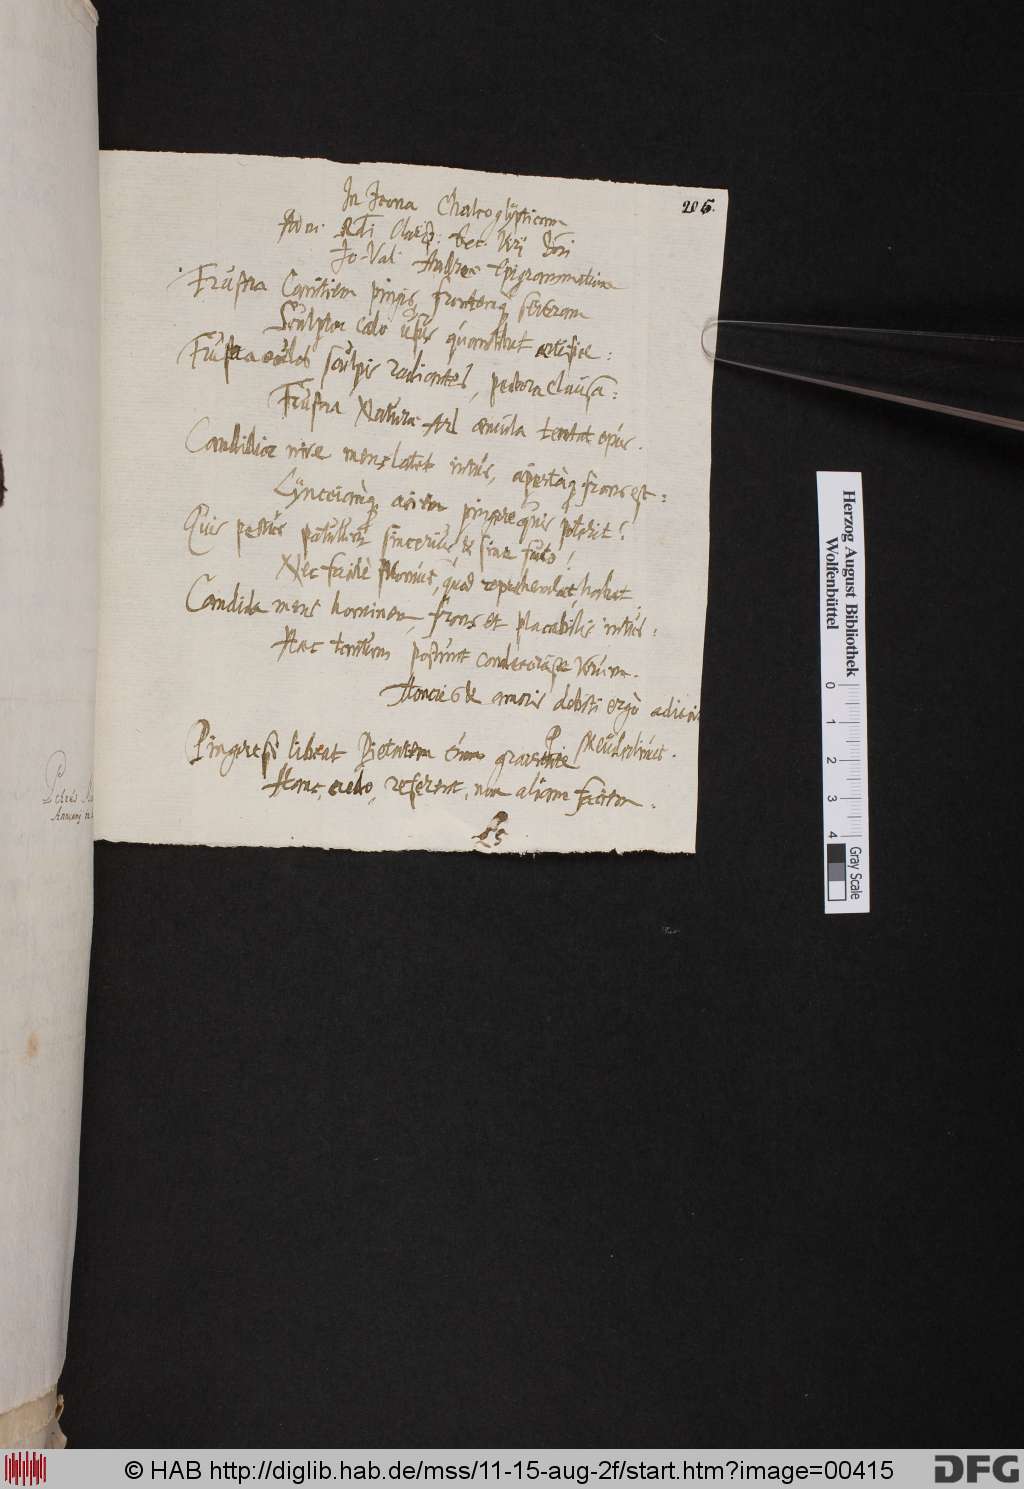 205.
In Icona Chalcoglypticam
Adm. Rdi Clariss: &ec. Viri Dni
Jo. Val. Andreæ Epigrammation
Frustra Canitiem pingis, frontemq severam
Sculptor cælo usus quantibut artifice:
Frustra oculos sculpis radiantes, pectora clausa:
Frustra Naturæ Ars æmula tentat opus.
Candidior nive mens latet intus, apertaq frons est:
Lynceamq aciem pingere quis poterit?
Quis pectus patulum sincerius, & sine fuco!
Nec facilè Momus, quod reprehendat, habet.
Candida mens hominem, frons et placabilis intus:
Hæc tantum possunt condecorare virum.
Honoris & amoris debiti ergò
Pingere si libeat Pietatem cum gravitate
Hanc, credo, referent, non aliam faciem.
Herzog August Bibliothek
Wolfenbüttel
0 1 2 3 4
Gray Scale
© HAB http://diglib.hab.de/mss/11-15-aug-2f/start.htm?image=00415
DFG